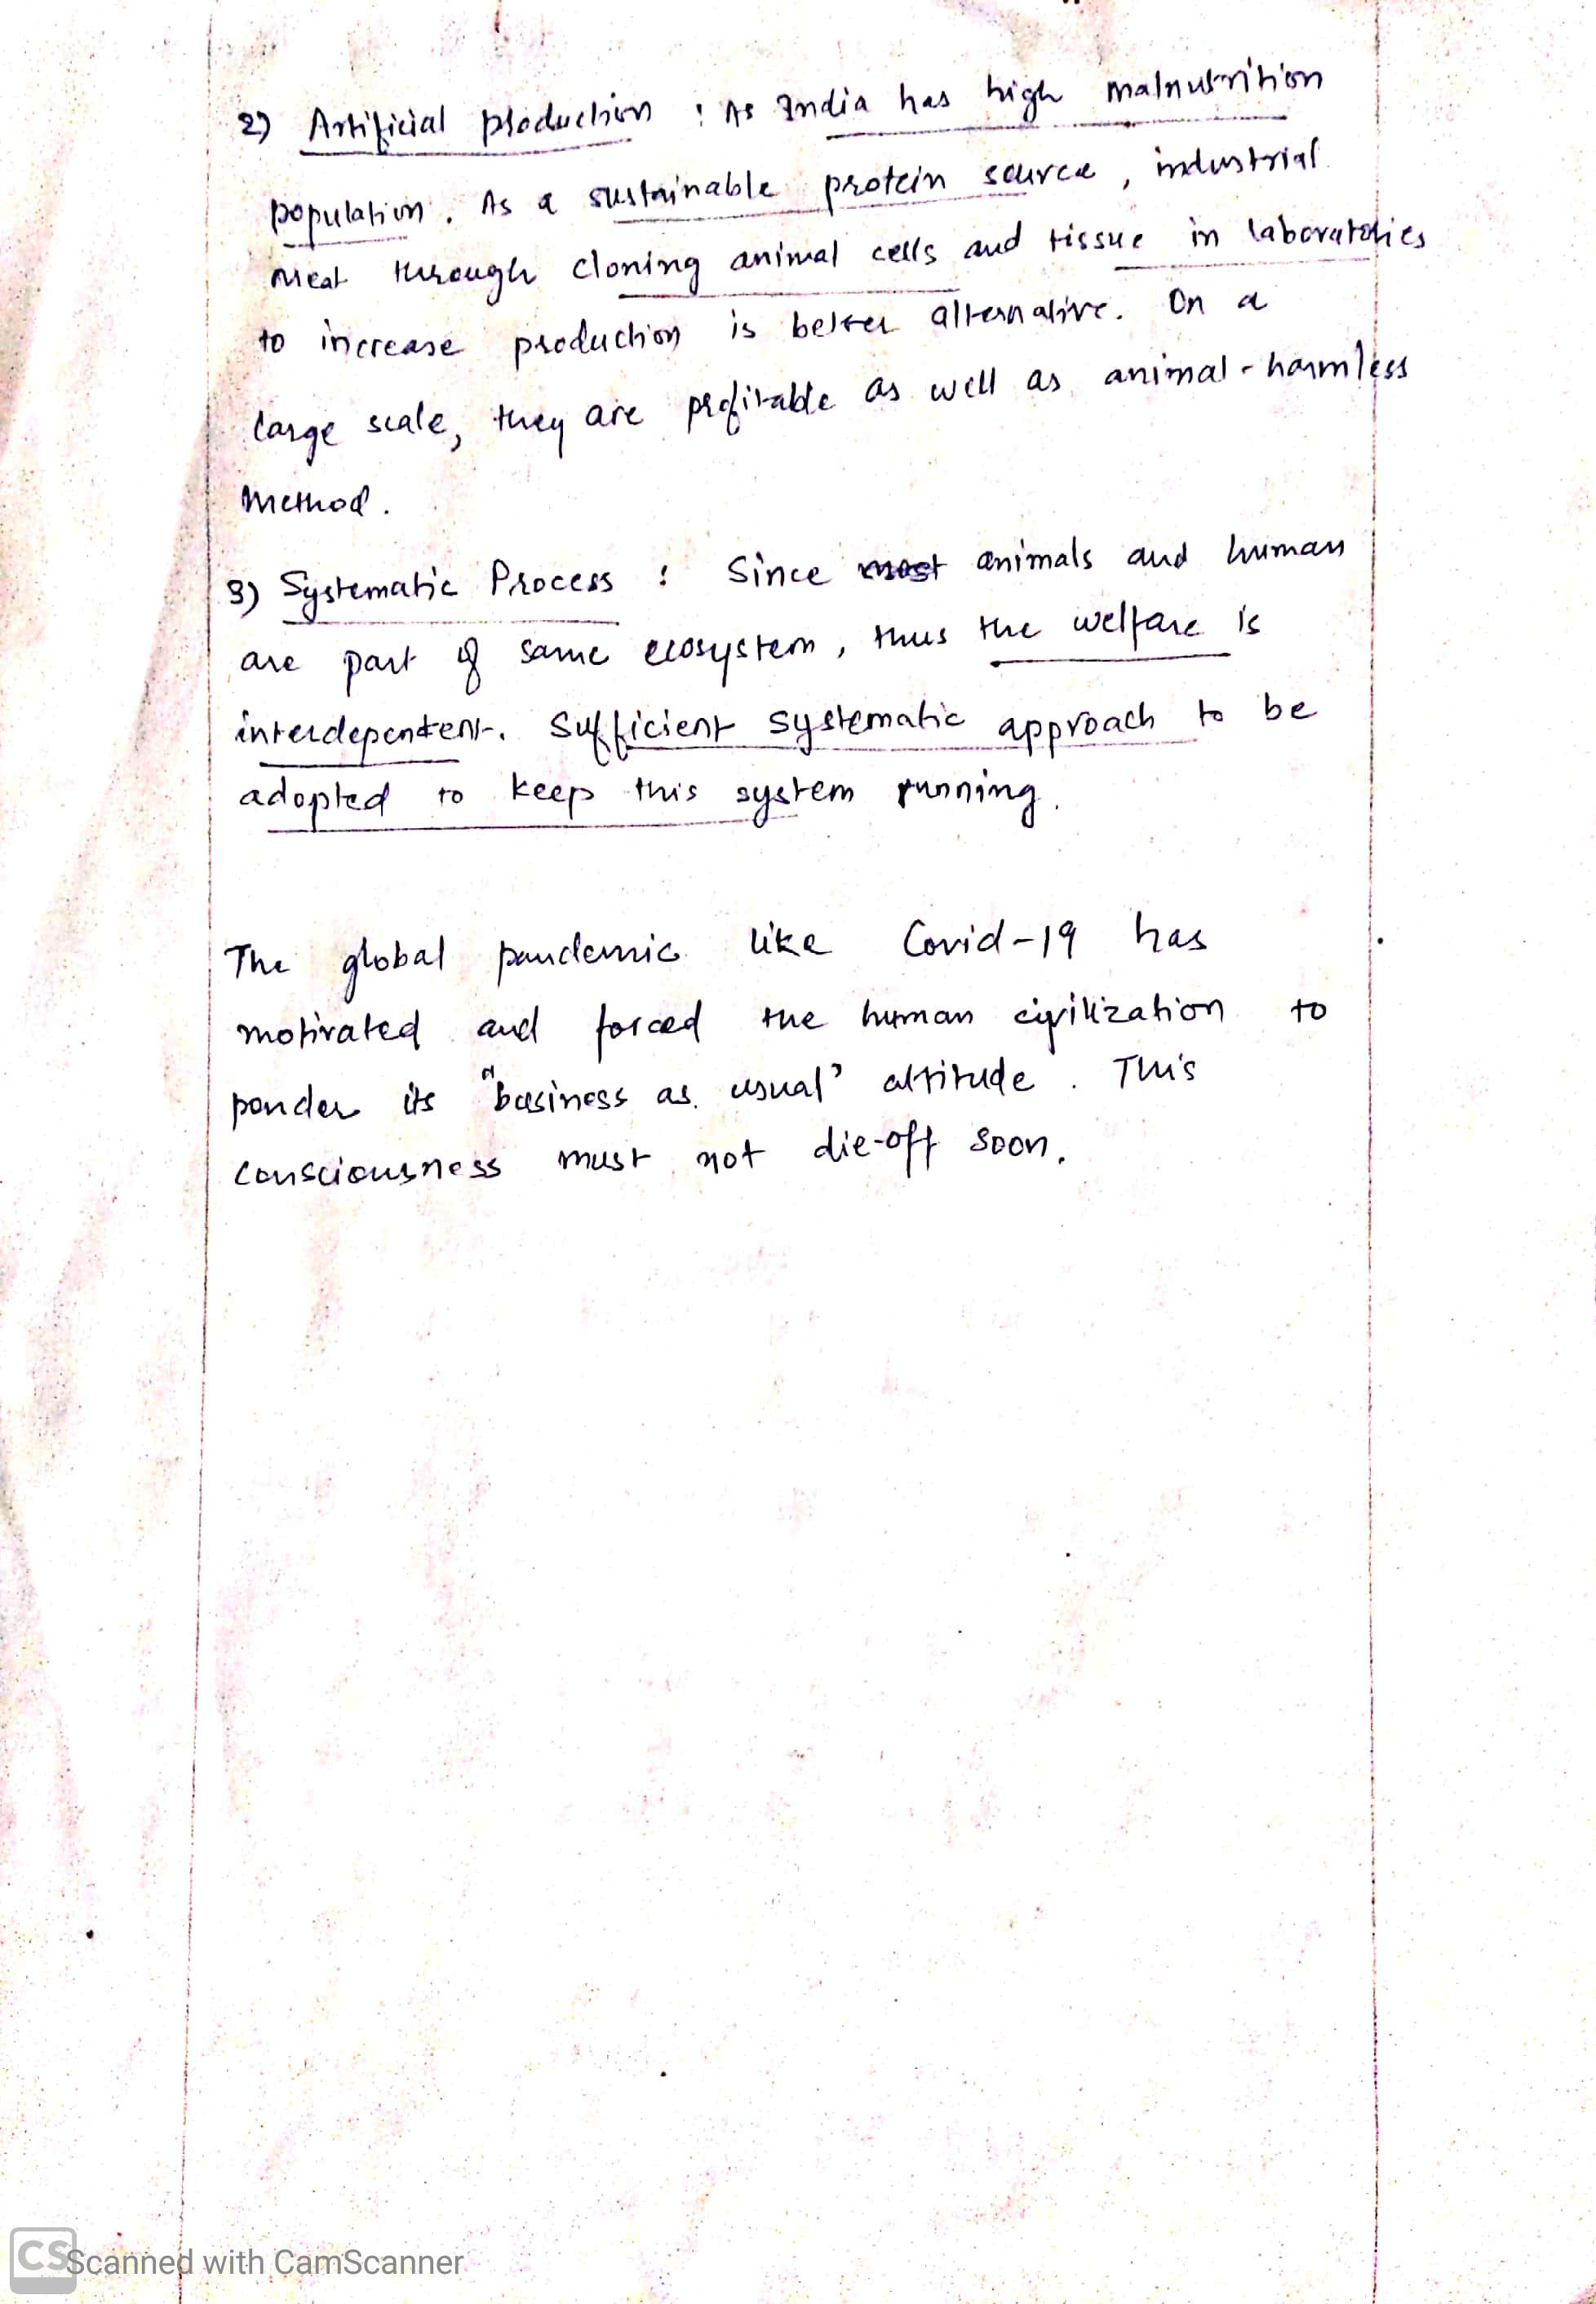 2) Artificial production : As India has high malnutrition
population. As a sustainable protein source, industrial
meat through cloning animal cells and tissue in laboratories
to increase production is better alternative. On a
large scale, they are profitable as well as animal-harmless
method.
3) Systematic Process : Since most animals and human
are part of same ecosystem, thus the welfare is
interdependent. Sufficient systematic approach to be
adopted to keep this system running.
The global pandemic like Covid-19 has
motivated and forced the human civilization to
ponder its "business as usual" attitude. This
consciousness must not die-off soon.
CS Scanned with CamScanner